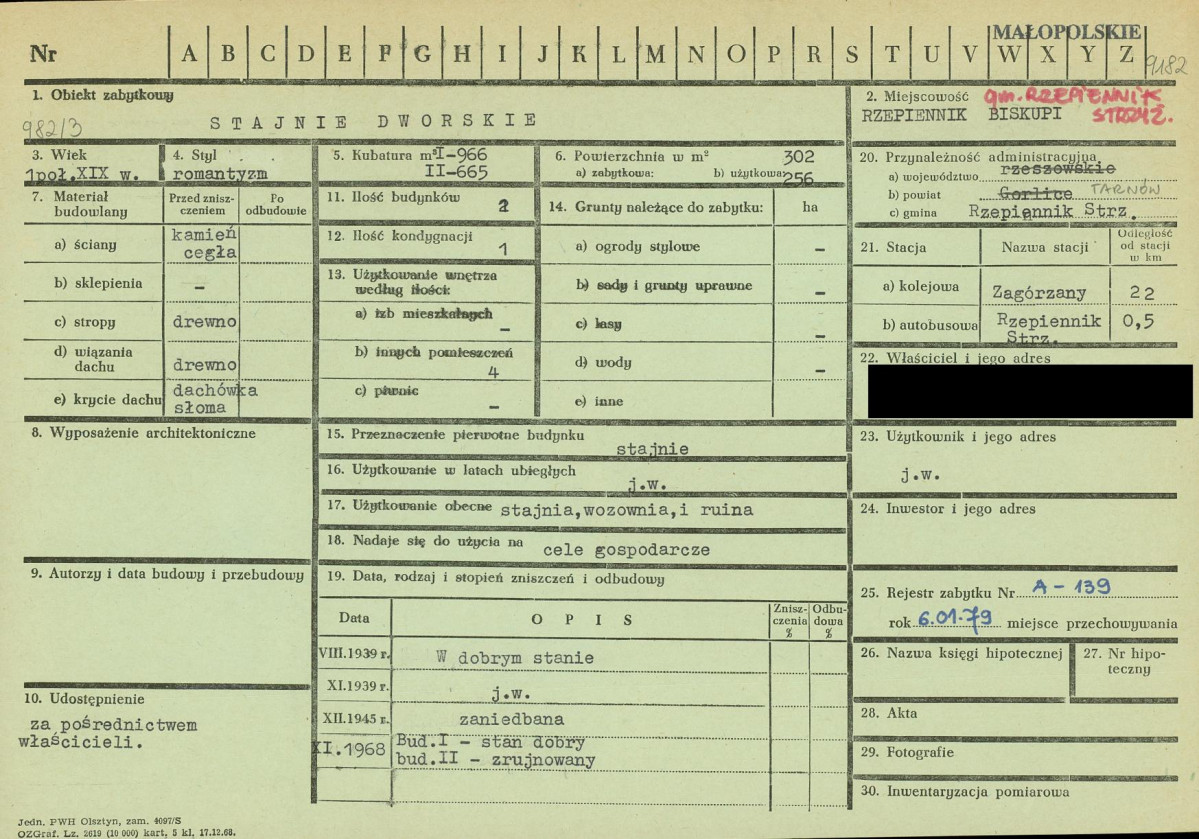 MAŁOPOLSKIE
Nr A B C D E F G H I J K L M N O P R S T U V W X Y Z
9182
1. Obiekt zabytkowy
982/3
STAJNIE DWORSKIE
2. Miejscowość gm. RZEPIENNIK
RZEPIENNIK BISKUPI STRZYŻ.
3. Wiek
1poł.XIX w.
4. Styl
romantyzm
5. Kubatura m³ I-966
II-665
6. Powierzchnia w m² 302
a) zabytkowa: b) użytkowa: 256
20. Przynależność administracyjna
a) województwo rzeszowskie
b) powiat Gorlice TARNÓW
c) gmina Rzepiennik Strz.
7. Materiał budowlany
Przed zniszczeniem
Po odbudowie
a) ściany kamień
cegła
b) sklepienia -
c) stropy drewno
d) wiązania dachu drewno
e) krycie dachu dachówka
słoma
11. Ilość budynków 2
12. Ilość kondygnacji 1
13. Użytkowanie wnętrza
według ilości:
a) izb mieszkalnych -
b) innych pomieszczeń 4
c) piwnic -
14. Grunty należące do zabytku: ha
a) ogrody stylowe -
b) sady i grunty uprawne -
c) lasy -
d) wody -
e) inne
21. Stacja Nazwa stacji Odległość od stacji w km
a) kolejowa Zagórzany 22
b) autobusowa Rzepiennik Strz. 0,5
22. Właściciel i jego adres
8. Wyposażenie architektoniczne
15. Przeznaczenie pierwotne budynku
stajnie
16. Użytkowanie w latach ubiegłych
j.w.
17. Użytkowanie obecne stajnia,wozownia,i ruina
18. Nadaje się do użycia na cele gospodarcze
23. Użytkownik i jego adres
j.w.
24. Inwestor i jego adres
9. Autorzy i data budowy i przebudowy
19. Data, rodzaj i stopień zniszczeń i odbudowy
Data OPIS Zniszczenia % Odbudowa %
VIII.1939 r. W dobrym stanie
XI.1939 r. j.w.
XII.1945 r. zaniedbana
XI.1968 Bud.I - stan dobry
bud.II - zrujnowany
25. Rejestr zabytku Nr A - 139
rok 6.01.79 miejsce przechowywania
26. Nazwa księgi hipotecznej
27. Nr hipoteczny
28. Akta
29. Fotografie
30. Inwentaryzacja pomiarowa
10. Udostępnienie
za pośrednictwem
właścicieli.
Jedn. PWH Olsztyn, zam. 4097/S
OZGraf. Lz. 2619 (10 000) kart, 5 kl, 17.12.68.